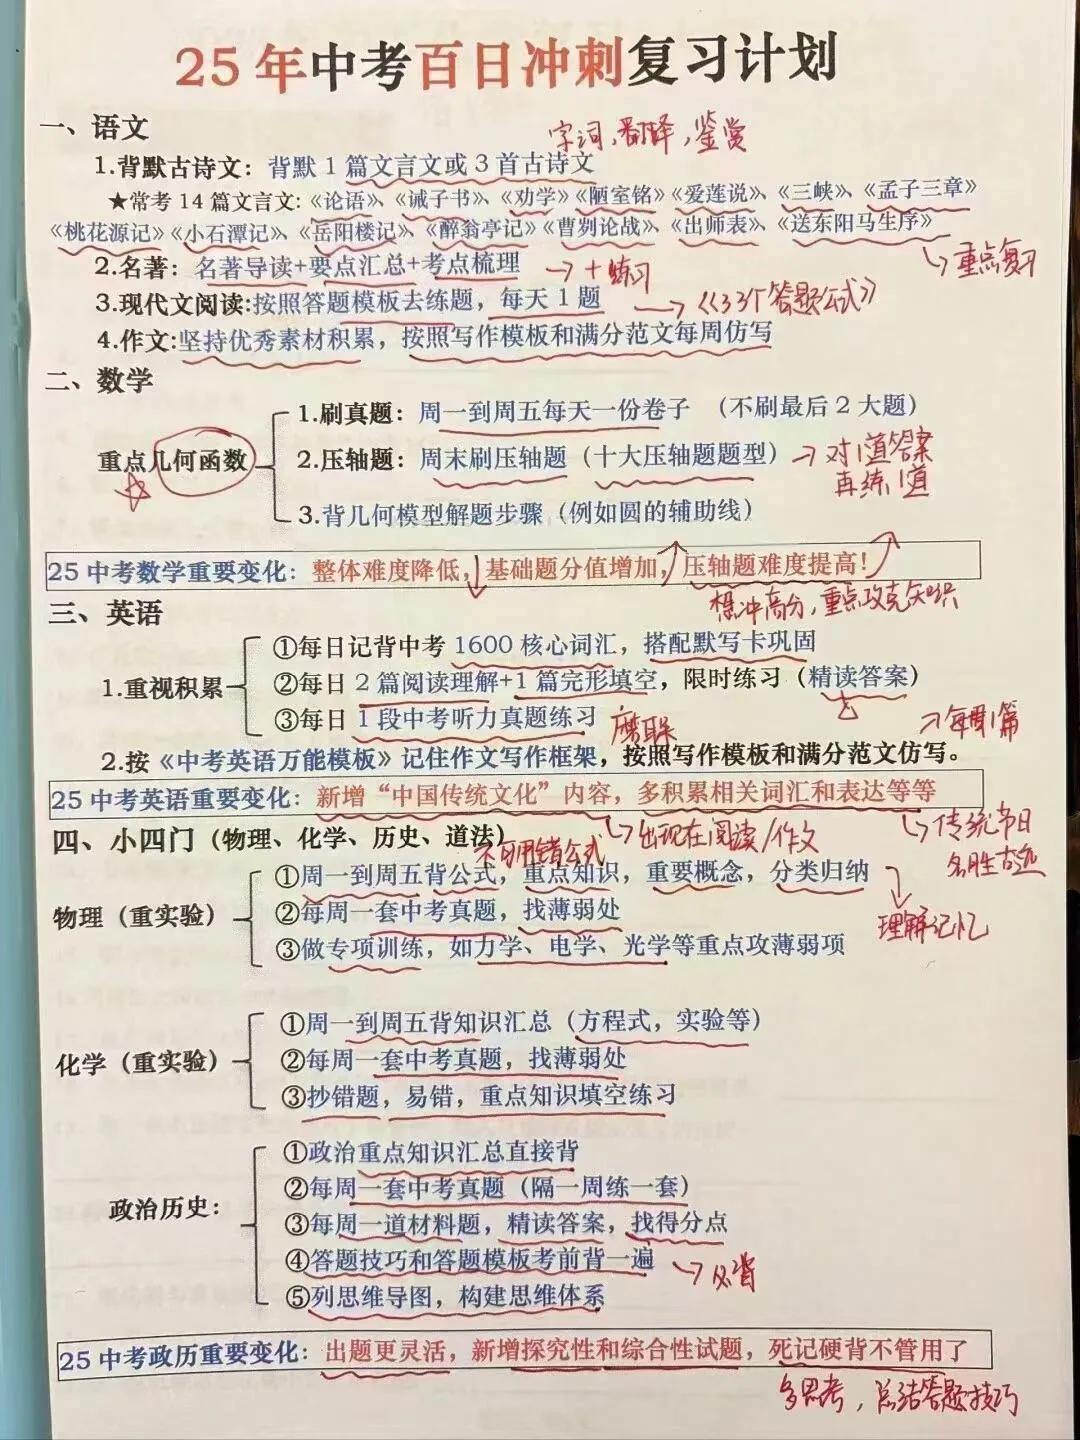 25年中考百日冲刺复习计划
一、语文
字词,翻译,鉴赏
1.背默古诗文：背默1篇文言文或3首古诗文
★常考14篇文言文:《论语》、《诫子书》、《劝学》《陋室铭》《爱莲说》、《三峡》、《孟子三章》
《桃花源记》《小石潭记》、《岳阳楼记》、《醉翁亭记》《曹刿论战》、《出师表》、《送东阳马生序》
重点复习
2.名著：名著导读+要点汇总+考点梳理
+练习
3.现代文阅读:按照答题模板去练题，每天1题
《33个答题公式》
4.作文:坚持优秀素材积累，按照写作模板和满分范文每周仿写
二、数学
1.刷真题：周一到周五每天一份卷子 （不刷最后2大题）
重点几何函数
2.压轴题：周末刷压轴题（十大压轴题题型）
对1道答案
再练1道
3.背几何模型解题步骤（例如圆的辅助线）
25中考数学重要变化：整体难度降低，基础题分值增加，压轴题难度提高！
想冲高分,重点攻克知识
三、英语
①每日记背中考1600核心词汇，搭配默写卡巩固
1.重视积累
②每日2篇阅读理解+1篇完形填空，限时练习（精读答案）
③每日1段中考听力真题练习
磨耳朵
每周1篇
2.按《中考英语万能模板》记住作文写作框架，按照写作模板和满分范文仿写。
25中考英语重要变化：新增“中国传统文化”内容，多积累相关词汇和表达等等
出现在阅读/作文
传统节日
名胜古迹
四、小四门（物理、化学、历史、道法）
不可用错公式
①周一到周五背公式，重点知识，重要概念，分类归纳
理解记忆
物理（重实验）
②每周一套中考真题，找薄弱处
③做专项训练，如力学、电学、光学等重点攻薄弱项
①周一到周五背知识汇总（方程式，实验等）
化学（重实验）
②每周一套中考真题，找薄弱处
③抄错题，易错，重点知识填空练习
①政治重点知识汇总直接背
②每周一套中考真题（隔一周练一套）
政治历史：
③每周一道材料题，精读答案，找得分点
④答题技巧和答题模板考前背一遍
必背
⑤列思维导图，构建思维体系
25中考政历重要变化：出题更灵活，新增探究性和综合性试题，死记硬背不管用了
多思考，总结答题技巧